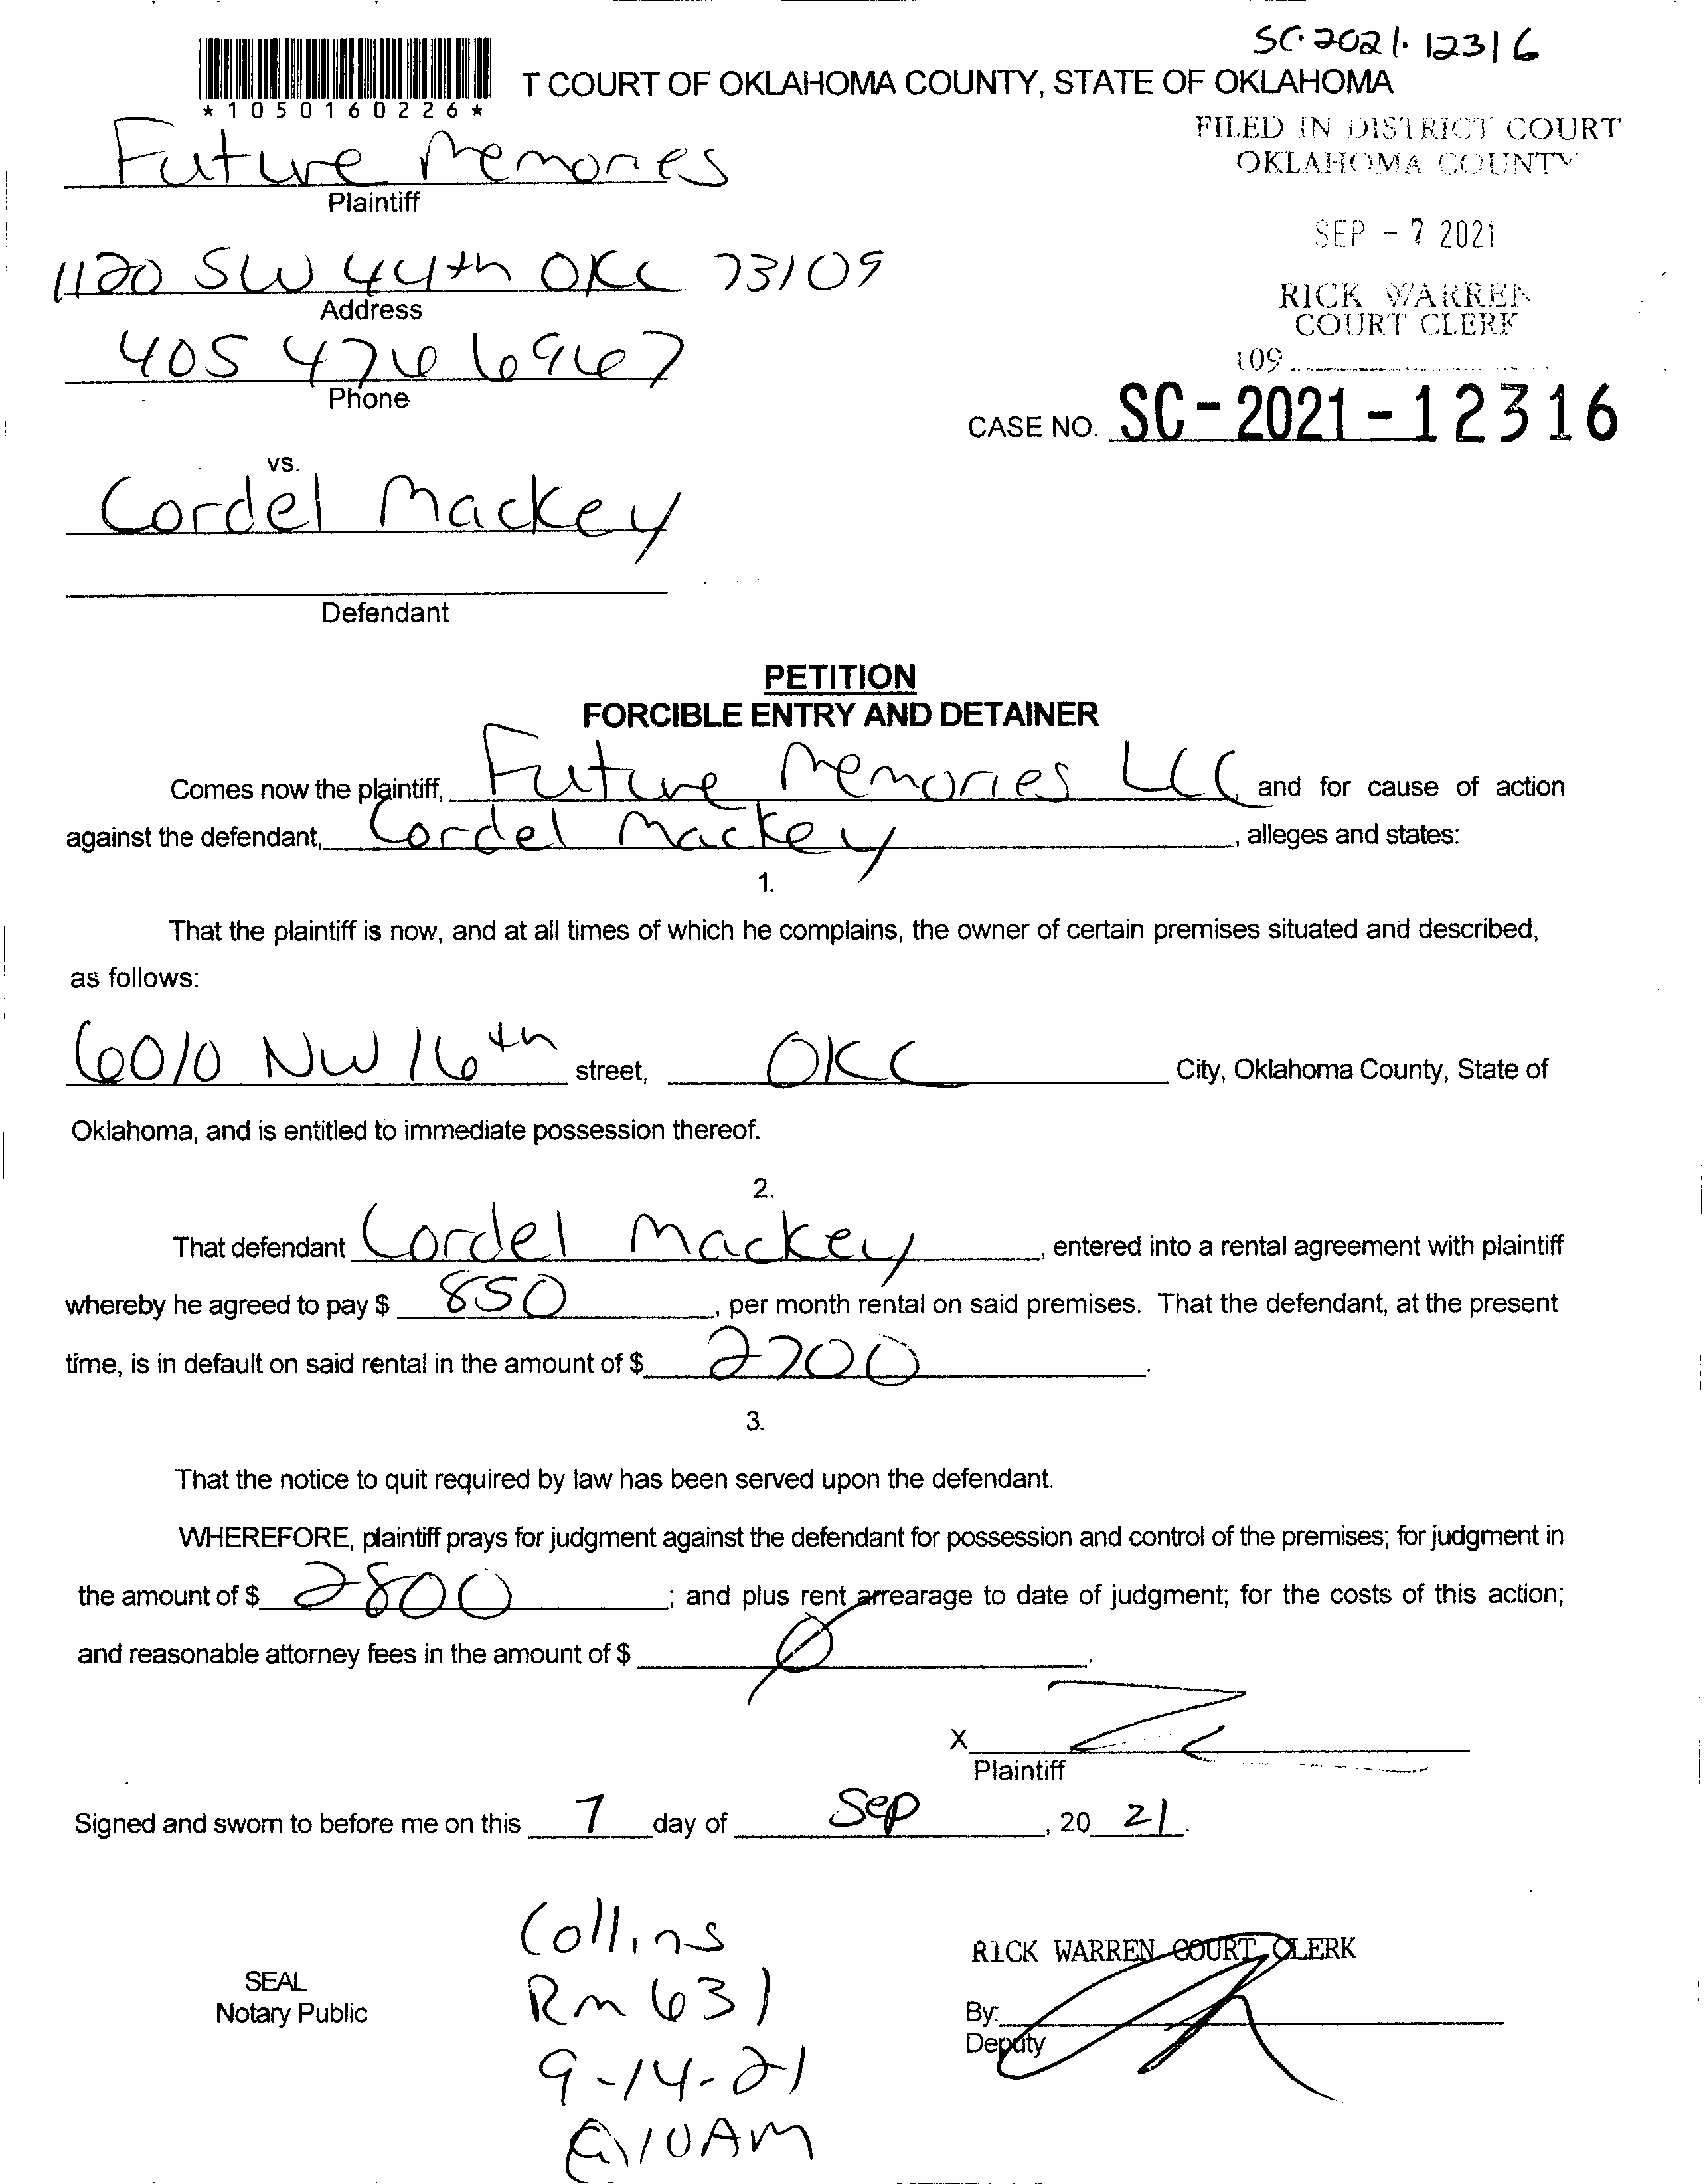 SC-2021-12316
*1050160226*
T COURT OF OKLAHOMA COUNTY, STATE OF OKLAHOMA
FILED IN DISTRICT COURT
OKLAHOMA COUNTY
Future Memories
Plaintiff
SEP - 7 2021
1120 SW 44th OKC 73109
Address
RICK WARREN
COURT CLERK
405 476 6967
109
Phone
CASE NO. SC-2021-12316
vs.
Cordel Mackey
Defendant
PETITION
FORCIBLE ENTRY AND DETAINER
Comes now the plaintiff, Future Memories LLC, and for cause of action
against the defendant, Cordel Mackey, alleges and states:
1.
That the plaintiff is now, and at all times of which he complains, the owner of certain premises situated and described,
as follows:
6010 NW 16th street, OKC City, Oklahoma County, State of
Oklahoma, and is entitled to immediate possession thereof.
2.
That defendant Cordel Mackey, entered into a rental agreement with plaintiff
whereby he agreed to pay $ 850, per month rental on said premises. That the defendant, at the present
time, is in default on said rental in the amount of $ 2700.
3.
That the notice to quit required by law has been served upon the defendant.
WHEREFORE, plaintiff prays for judgment against the defendant for possession and control of the premises; for judgment in
the amount of $ 2800; and plus rent arrearage to date of judgment; for the costs of this action;
and reasonable attorney fees in the amount of $ Ø.
X
Plaintiff
Signed and sworn to before me on this 7 day of Sep, 20 21.
Collins
RICK WARREN COURT CLERK
SEAL
Rm 631
Notary Public
By:
Deputy
9-14-21
@10AM